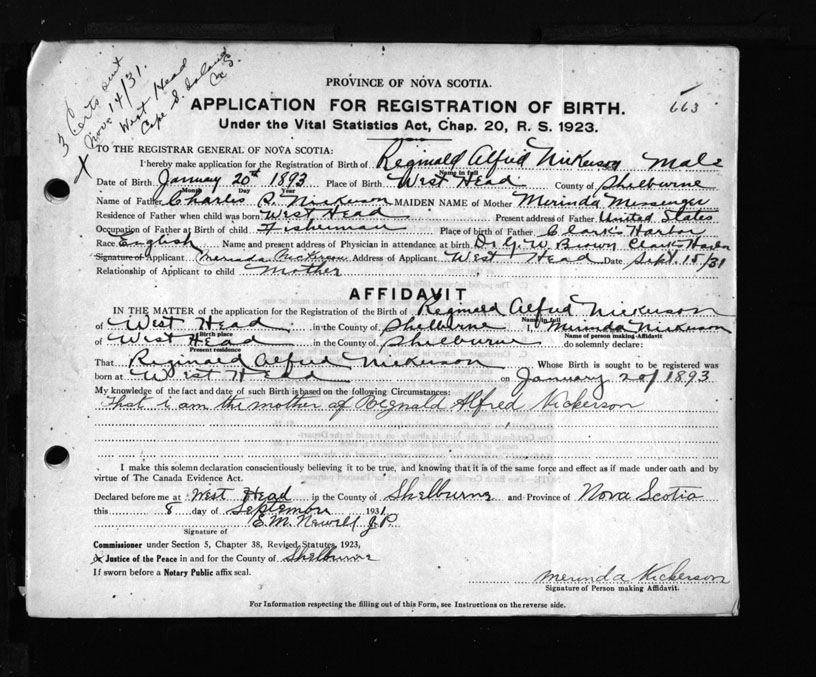 3 Certs sent
Nov. 14/31.
West Head
Cape S. Island
N.S.
X
663
PROVINCE OF NOVA SCOTIA.
APPLICATION FOR REGISTRATION OF BIRTH.
Under the Vital Statistics Act, Chap. 20, R. S. 1923.
TO THE REGISTRAR GENERAL OF NOVA SCOTIA:
I hereby make application for the Registration of Birth of Reginald Alfred Nickerson Male
Name in full
Date of Birth January 20th 1893 Place of Birth West Head County of Shelburne
Month Day Year
Name of Father Charles Nickerson MAIDEN NAME of Mother Merinda Messenger
Residence of Father when child was born West Head Present address of Father United States
Occupation of Father at Birth of child Fisherman Place of birth of Father Clark's Harbor
Race English Name and present address of Physician in attendance at birth Dr. G. W. Brown Clark's Harbor
Signature of Applicant Merinda Nickerson Address of Applicant West Head Date Sept. 15/31
Relationship of Applicant to child Mother
AFFIDAVIT
IN THE MATTER of the application for the Registration of the Birth of Reginald Alfred Nickerson
Name in full
of West Head in the County of Shelburne I, Merinda Nickerson
Birth place Name of person making Affidavit
of West Head in the County of Shelburne do solemnly declare:
Present residence
That Reginald Alfred Nickerson Whose Birth is sought to be registered was
born at West Head on January 20 1893
My knowledge of the fact and date of such Birth is based on the following Circumstances:
That i am the mother of Reginald Alfred Nickerson
I make this solemn declaration conscientiously believing it to be true, and knowing that it is of the same force and effect as if made under oath and by
virtue of The Canada Evidence Act.
Declared before me at West Head in the County of Shelburne and Province of Nova Scotia
this 8 day of September 1931
E. M. Newell J.P.
Signature of
Commissioner under Section 5, Chapter 38, Revised Statutes, 1923,
or Justice of the Peace in and for the County of Shelburne
If sworn before a Notary Public affix seal.
Merinda Nickerson
Signature of Person making Affidavit.
For Information respecting the filling out of this Form, see Instructions on the reverse side.